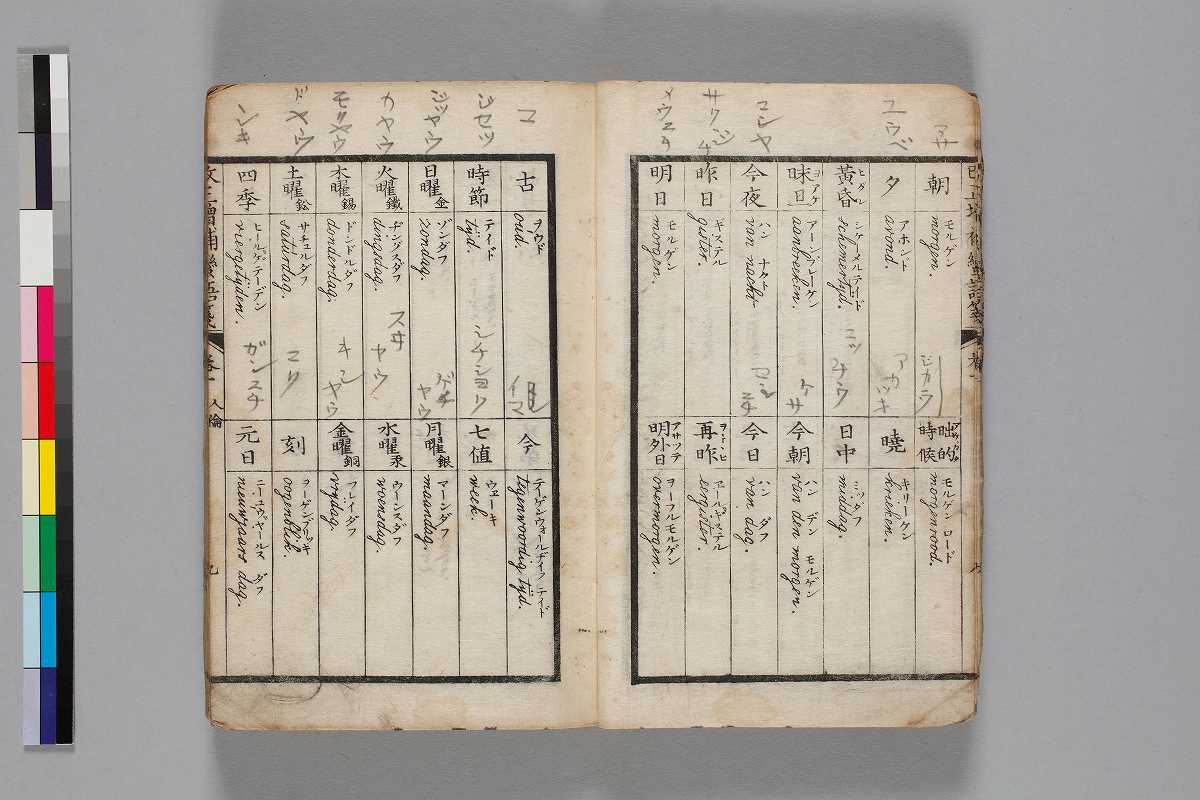 朝
モルゲン
morgen.
夕
アホント
avond.
黃昏
ヒグレ
schemertyd.
昧日
ヨアケ
アーンブレーケン
aanbreeken.
今夜
ハン ナグト
van nacht
昨日
ギステル
gister.
明日
モルゲン
morgen.
昢的時候
モルゲン ロード
morgenrood.
曉
キリーケン
krieken.
日中
ミッダフ
middag.
今朝
ハン デン モルゲン
van den morgen.
今日
ハン ダフ
van dag.
再昨
ヲトヽヒ
eergister.
明外日
アサツテ
ヲーフルモルゲン
overmorgen.
アサ
ユウベ
コンヤ
サクジツ
アカツキ
ニッチウ
ケサ
古
ヲウド
oud.
時節
テイド
tijd.
日曜 金
ゾンダフ
zondag.
火曜 鐵
ヂングスダフ
dingsdag.
木曜 錫
ドンドルダフ
donderdag.
土曜 鉛
サチュルダフ
saturdag.
四季
ヒールゲテーデン
viergetijden.
今
テーゲンウォールヂイフ テイド
tegenwoordig tijd.
七値
ウェーキ
week.
月曜 銀
マーンダフ
maandag.
水曜 汞
ウーンスダフ
woensdag.
金曜 銅
フレイダフ
vrydag.
刻
ヲーゲンブリッキ
oogenblik.
元日
ニーユウヤールス ダフ
nieuwjaars dag.
コ
ジセツ
ジツヤウ
カヤウ
モクヤウ
ドヤウ
シキ
イマ
シチシヨク
ゲチヤウ
スヰヤウ
キンヤウ
コク
ガンスチ
改正增補蠻語箋
卷一 人倫
九